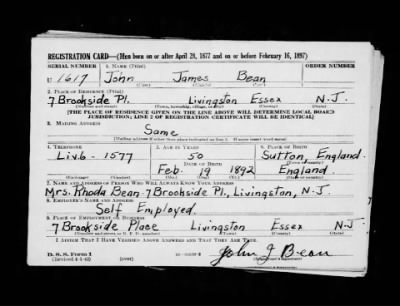 REGISTRATION CARD—(Men born on or after April 28, 1877 and on or before February 16, 1897)
SERIAL NUMBER 1. NAME (Print) ORDER NUMBER
U 1617 John James Bean
(First) (Middle) (Last)
2. PLACE OF RESIDENCE (Print)
7 Brookside Pl. Livingston Essex N.J.
(Number and street) (Town, township, village, or city) (County) (State)
[THE PLACE OF RESIDENCE GIVEN ON THE LINE ABOVE WILL DETERMINE LOCAL BOARD
JURISDICTION; LINE 2 OF REGISTRATION CERTIFICATE WILL BE IDENTICAL]
3. MAILING ADDRESS
Same
[Mailing address if other than place indicated on line 2. If same insert word same]
4. TELEPHONE 5. AGE IN YEARS 6. PLACE OF BIRTH
Liv.6-1577 50 Sutton, England.
DATE OF BIRTH
Feb. 19 1892 England.
(Mo.) (Day) (Yr.)
7. NAME AND ADDRESS OF PERSON WHO WILL ALWAYS KNOW YOUR ADDRESS
Mrs. Rhoda Bean, 7 Brookside Pl., Livingston, N.J.
8. EMPLOYER'S NAME AND ADDRESS
Self Employed.
9. PLACE OF EMPLOYMENT OR BUSINESS
7 Brookside Place Livingston Essex N.J.
(Number and street or R. F. D. number) (Town) (County) (State)
I AFFIRM THAT I HAVE VERIFIED ABOVE ANSWERS AND THAT THEY ARE TRUE.
D. S. S. Form 1
John J Bean